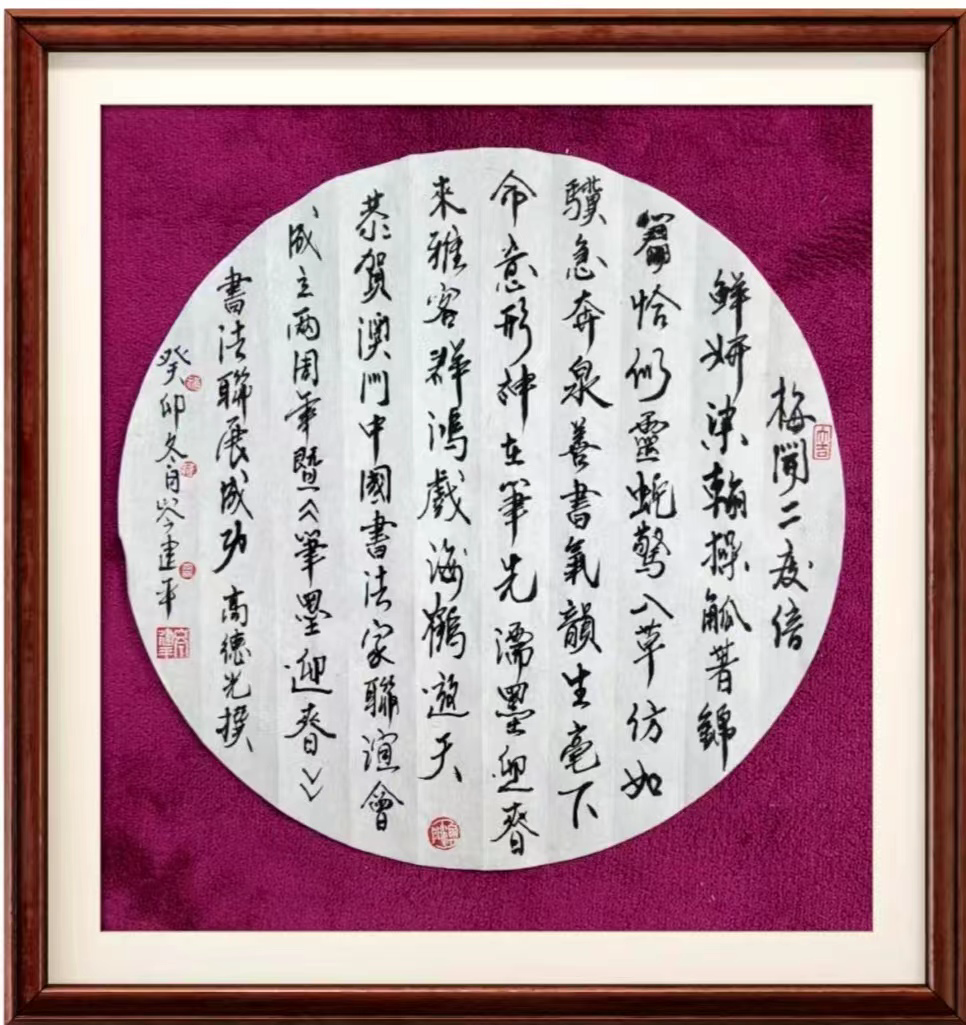 梅開二度倍
鮮妍染翰操觚著錦
篇恰似靈蛇驚入草仿如
驥急奔泉善書氣韻生毫下
命意形神在筆先濡墨迎春
來雅客群鴻戲海鶴遊天
恭賀澳門中國書法家聯誼會
成立兩周年暨《筆墨迎春》
書法聯展成功 高德光撰
癸卯冬月岑建平
大吉